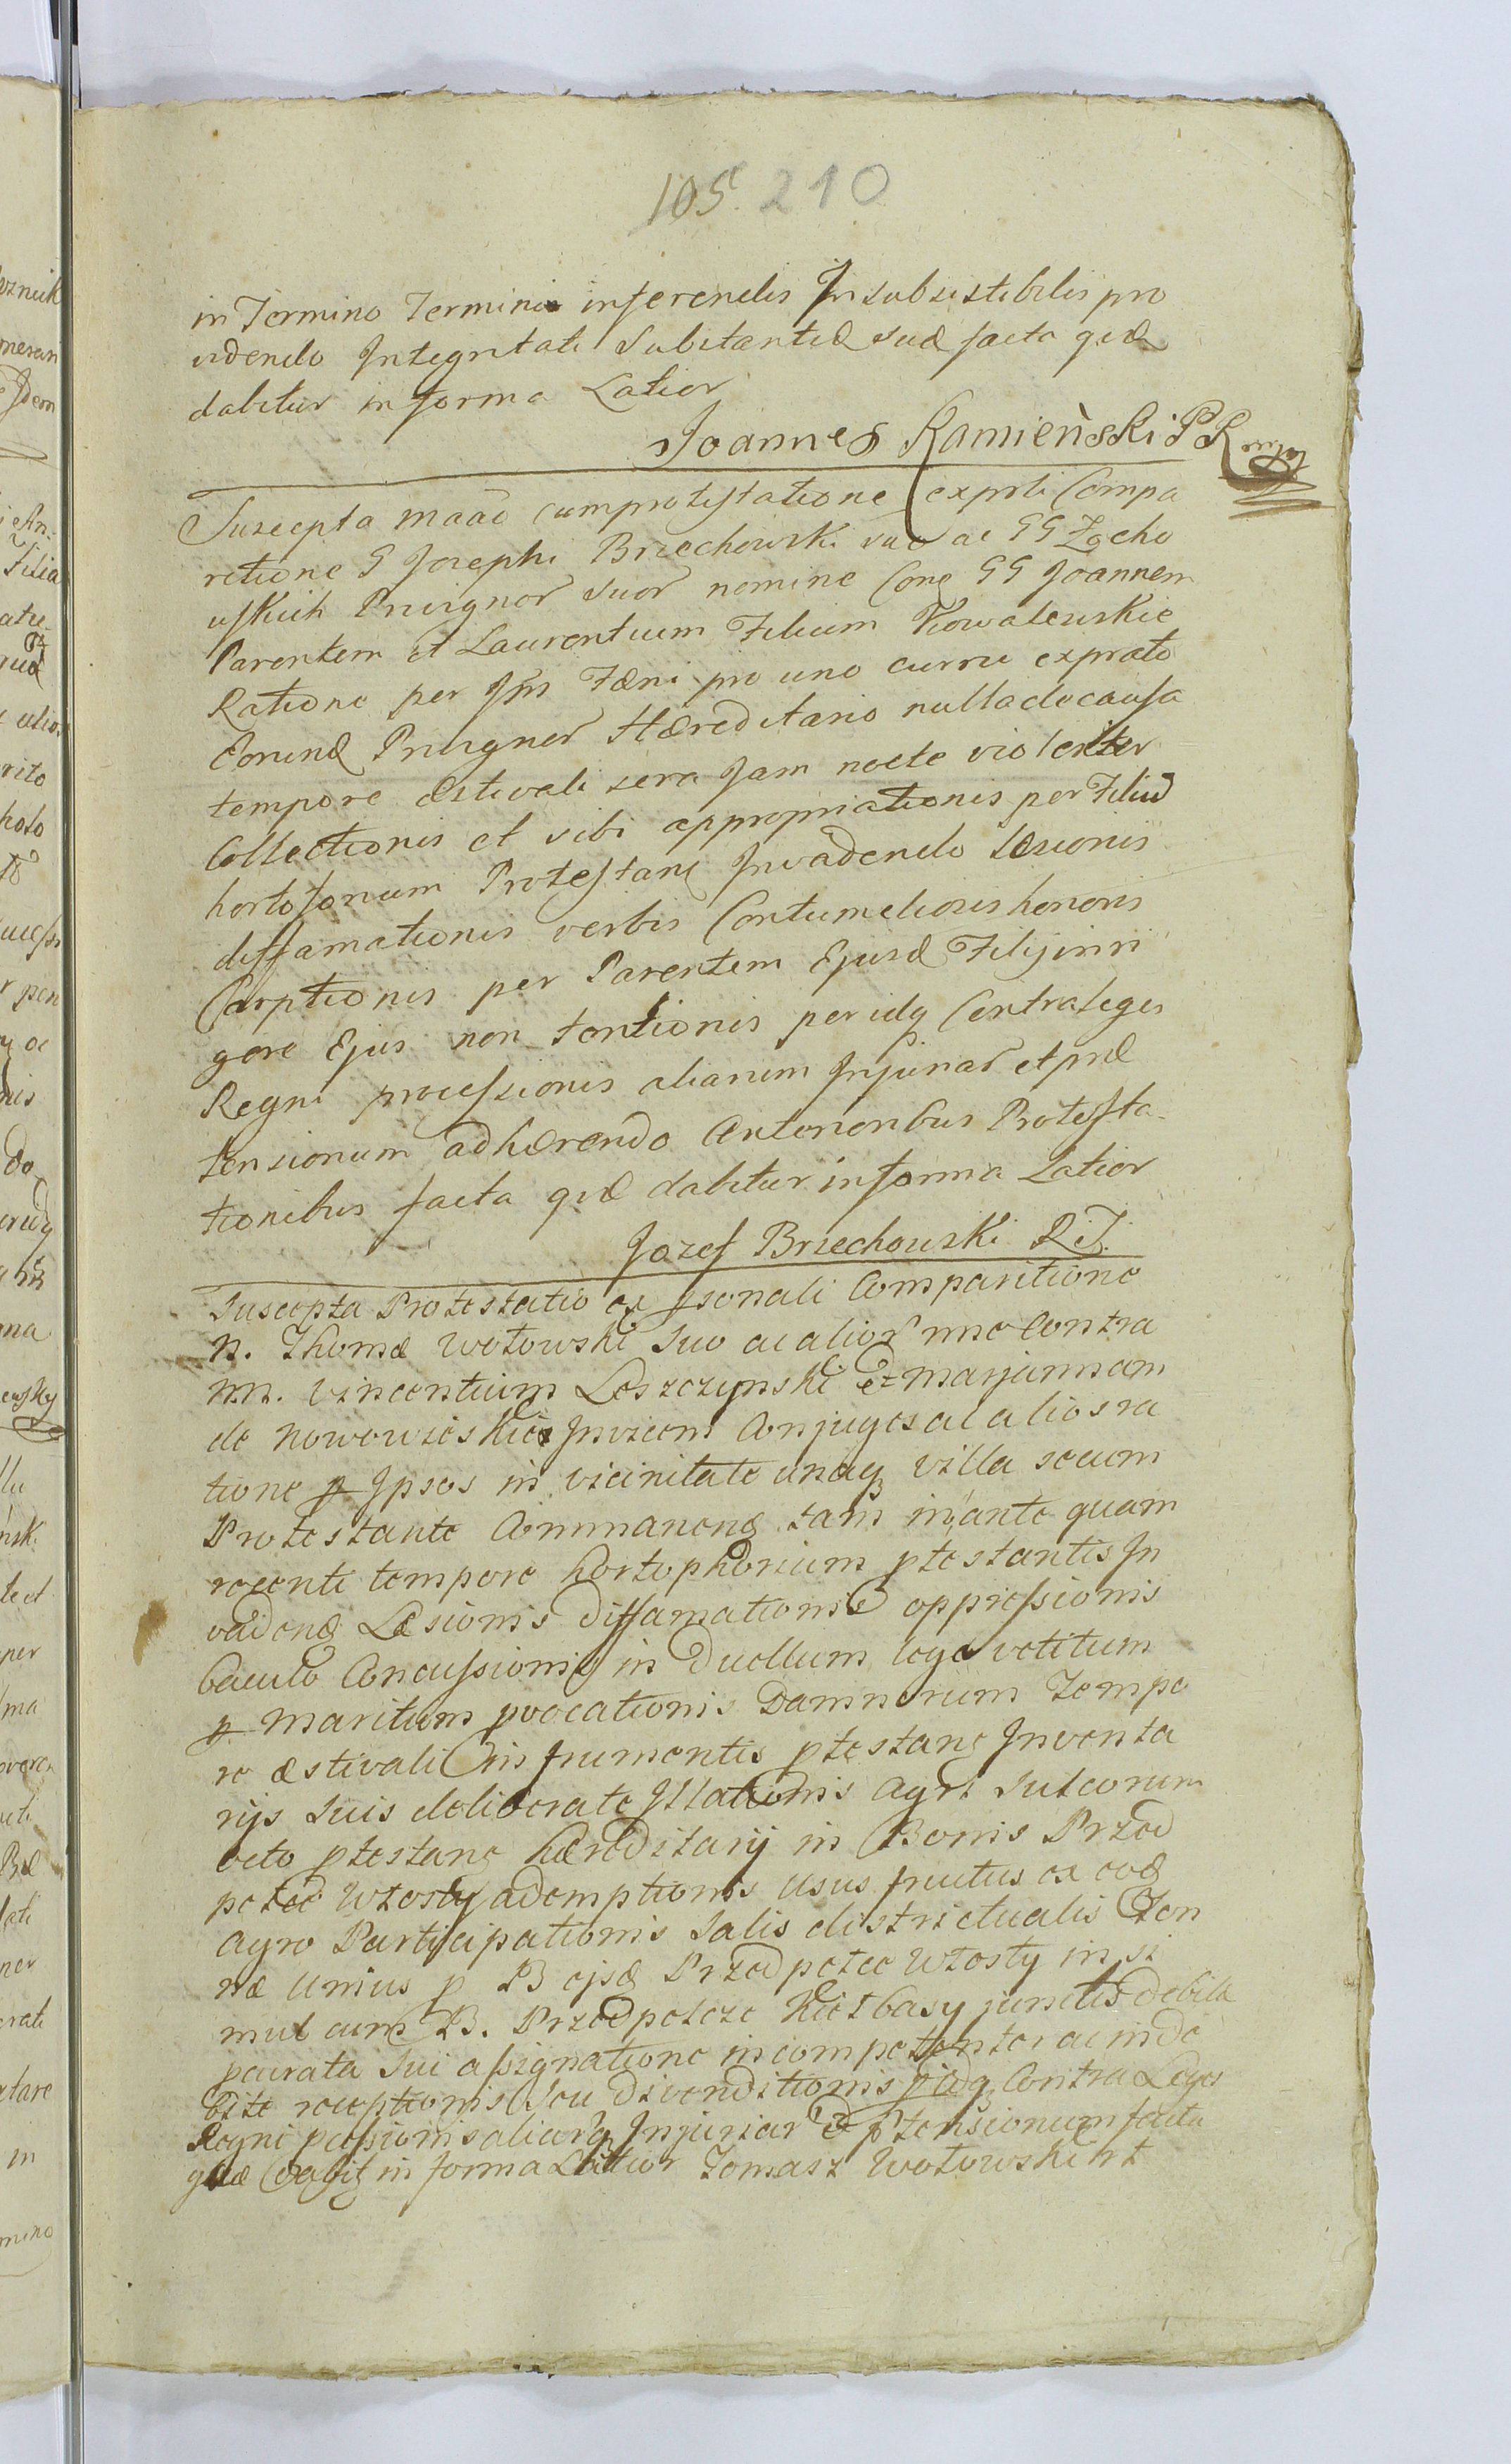 105. 210
in Termino Termini inferendis Insubsistibilis pro
videndo Integritati Substantiæ suæ facta quæ
dabitur in forma Latior
Joannes Kamieński P R
Suscepta maāo cum protestatione ex prli Compa
ritione G Josephi Brzechowski suo ac GG Zocho
wskich Privignor suor nomine Con GG Joannem
Parentem et Laurentium Filium Kowalewskie
Ratione per Ipsos Fæni pro uno curru ex prato
Eorund Privignor Hæreditario nulla de causa
tempore æstivali sera Jam nocte violenter
Collectionis et sibi appropriationis per Filiu
hortisonum Protestan Invadendo Læsionis
diffamationis verbis Contumeliosis honoris
Carptionis per Parentem Ejusd Filij in ri
gore Ejus non tentionis per idq Contra leges
Regni processionis aliarum Injuriar et præ
tensionum adhærendo Anterioribus Protesta-
tionibus facta quæ dabitur in forma Latior
Jozef Brzechowski R.J.
Suscepta Protestatio ex psonali Comparitione
N. Thomæ Wotowski suo ac alior nno Contra
NN. Vincentium Leszczynski et Marjannam
de Nowowieskie Invicem Conjuges ac alios ra
tione p Ipsos in vicinitate unaq villa secum
Protestante Commanene tam in ante quam
recenti tempore hortophorium ptestantis In
vadene Læsionis diffamationis oppressionis
baculo Concussionis in Duellum lege vetitum
p Maritum pvocationis Damnorum Tempo
re æstivali in frumentis ptestane Inventa
rijs suis deliberate Illationis Agri sulcorum
octo ptestane hæreditarij in Bonis Przed
potcc Wtosty ademptionis usus fructus ex eod
agro Participationis Salis districtualis Ton
næ unius p B ejsd Przedpotcc Wtosty in si
mul cum B. Przedpolcze Kiełbasy junctis debita
parata sui assignatione incompetenter ac inde
bite receptionis seu divenditionis p idq Contra Leges
Regni passionis aliarq Injuriar et ptensionum facta
quæ dabit in forma Latior Tomasz Wotowski mt